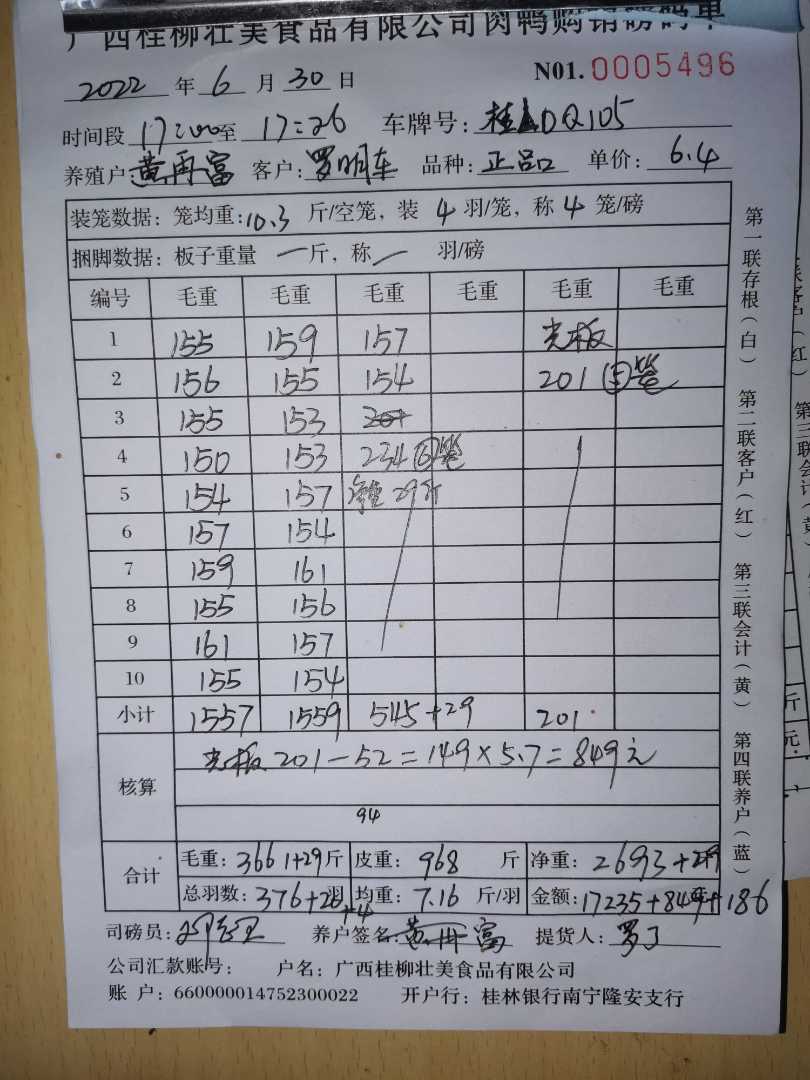 广西桂柳壮美食品有限公司肉鸭购销磅码单
2022 年 6 月 30 日 N01. 0005496
时间段 17:00 至 17:26 车牌号: 桂ADQ105
养殖户 黄再富 客户: 罗明车 品种: 正品 单价: 6.4
装笼数据: 笼均重: 10.3 斤/空笼, 装 4 羽/笼, 称 4 笼/磅
捆脚数据: 板子重量 一 斤, 称 一 羽/磅
编号 毛重 毛重 毛重 毛重 毛重 毛重
1 155 159 157 光板
2 156 155 154 201 ⑤笼
3 155 153
4 150 153 234 ⑥笼
5 154 157 净重 29斤
6 157 154
7 159 161
8 155 156
9 161 157
10 155 154
小计 1557 1559 545+29 201
核算 光板 201-52=149×5.7=849元
94
合计 毛重: 3661+29 斤 皮重: 968 斤 净重: 2693+29
总羽数: 376+20 羽 +4 均重: 7.16 斤/羽 金额: 17235+849+186
司磅员: 养户签名: 黄再富 提货人: 罗丁
公司汇款账号: 户名: 广西桂柳壮美食品有限公司
账 户: 660000014752300022 开户行: 桂林银行南宁隆安支行
第一联存根(白) 第二联客户(红) 第三联会计(黄) 第四联养户(蓝)
联客户(红) 第三联会计(黄)
斤
元